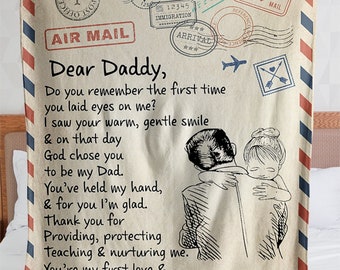 12345
IMMIGRATION
AIR MAIL
ARRIVAL
Dear Daddy,
Do you remember the first time
you laid eyes on me?
I saw your warm, gentle smile
& on that day
God chose you
to be my Dad.
You've held my hand,
& for you I'm glad.
Thank you for
Providing, protecting
Teaching & nurturing me.
You're my first love &